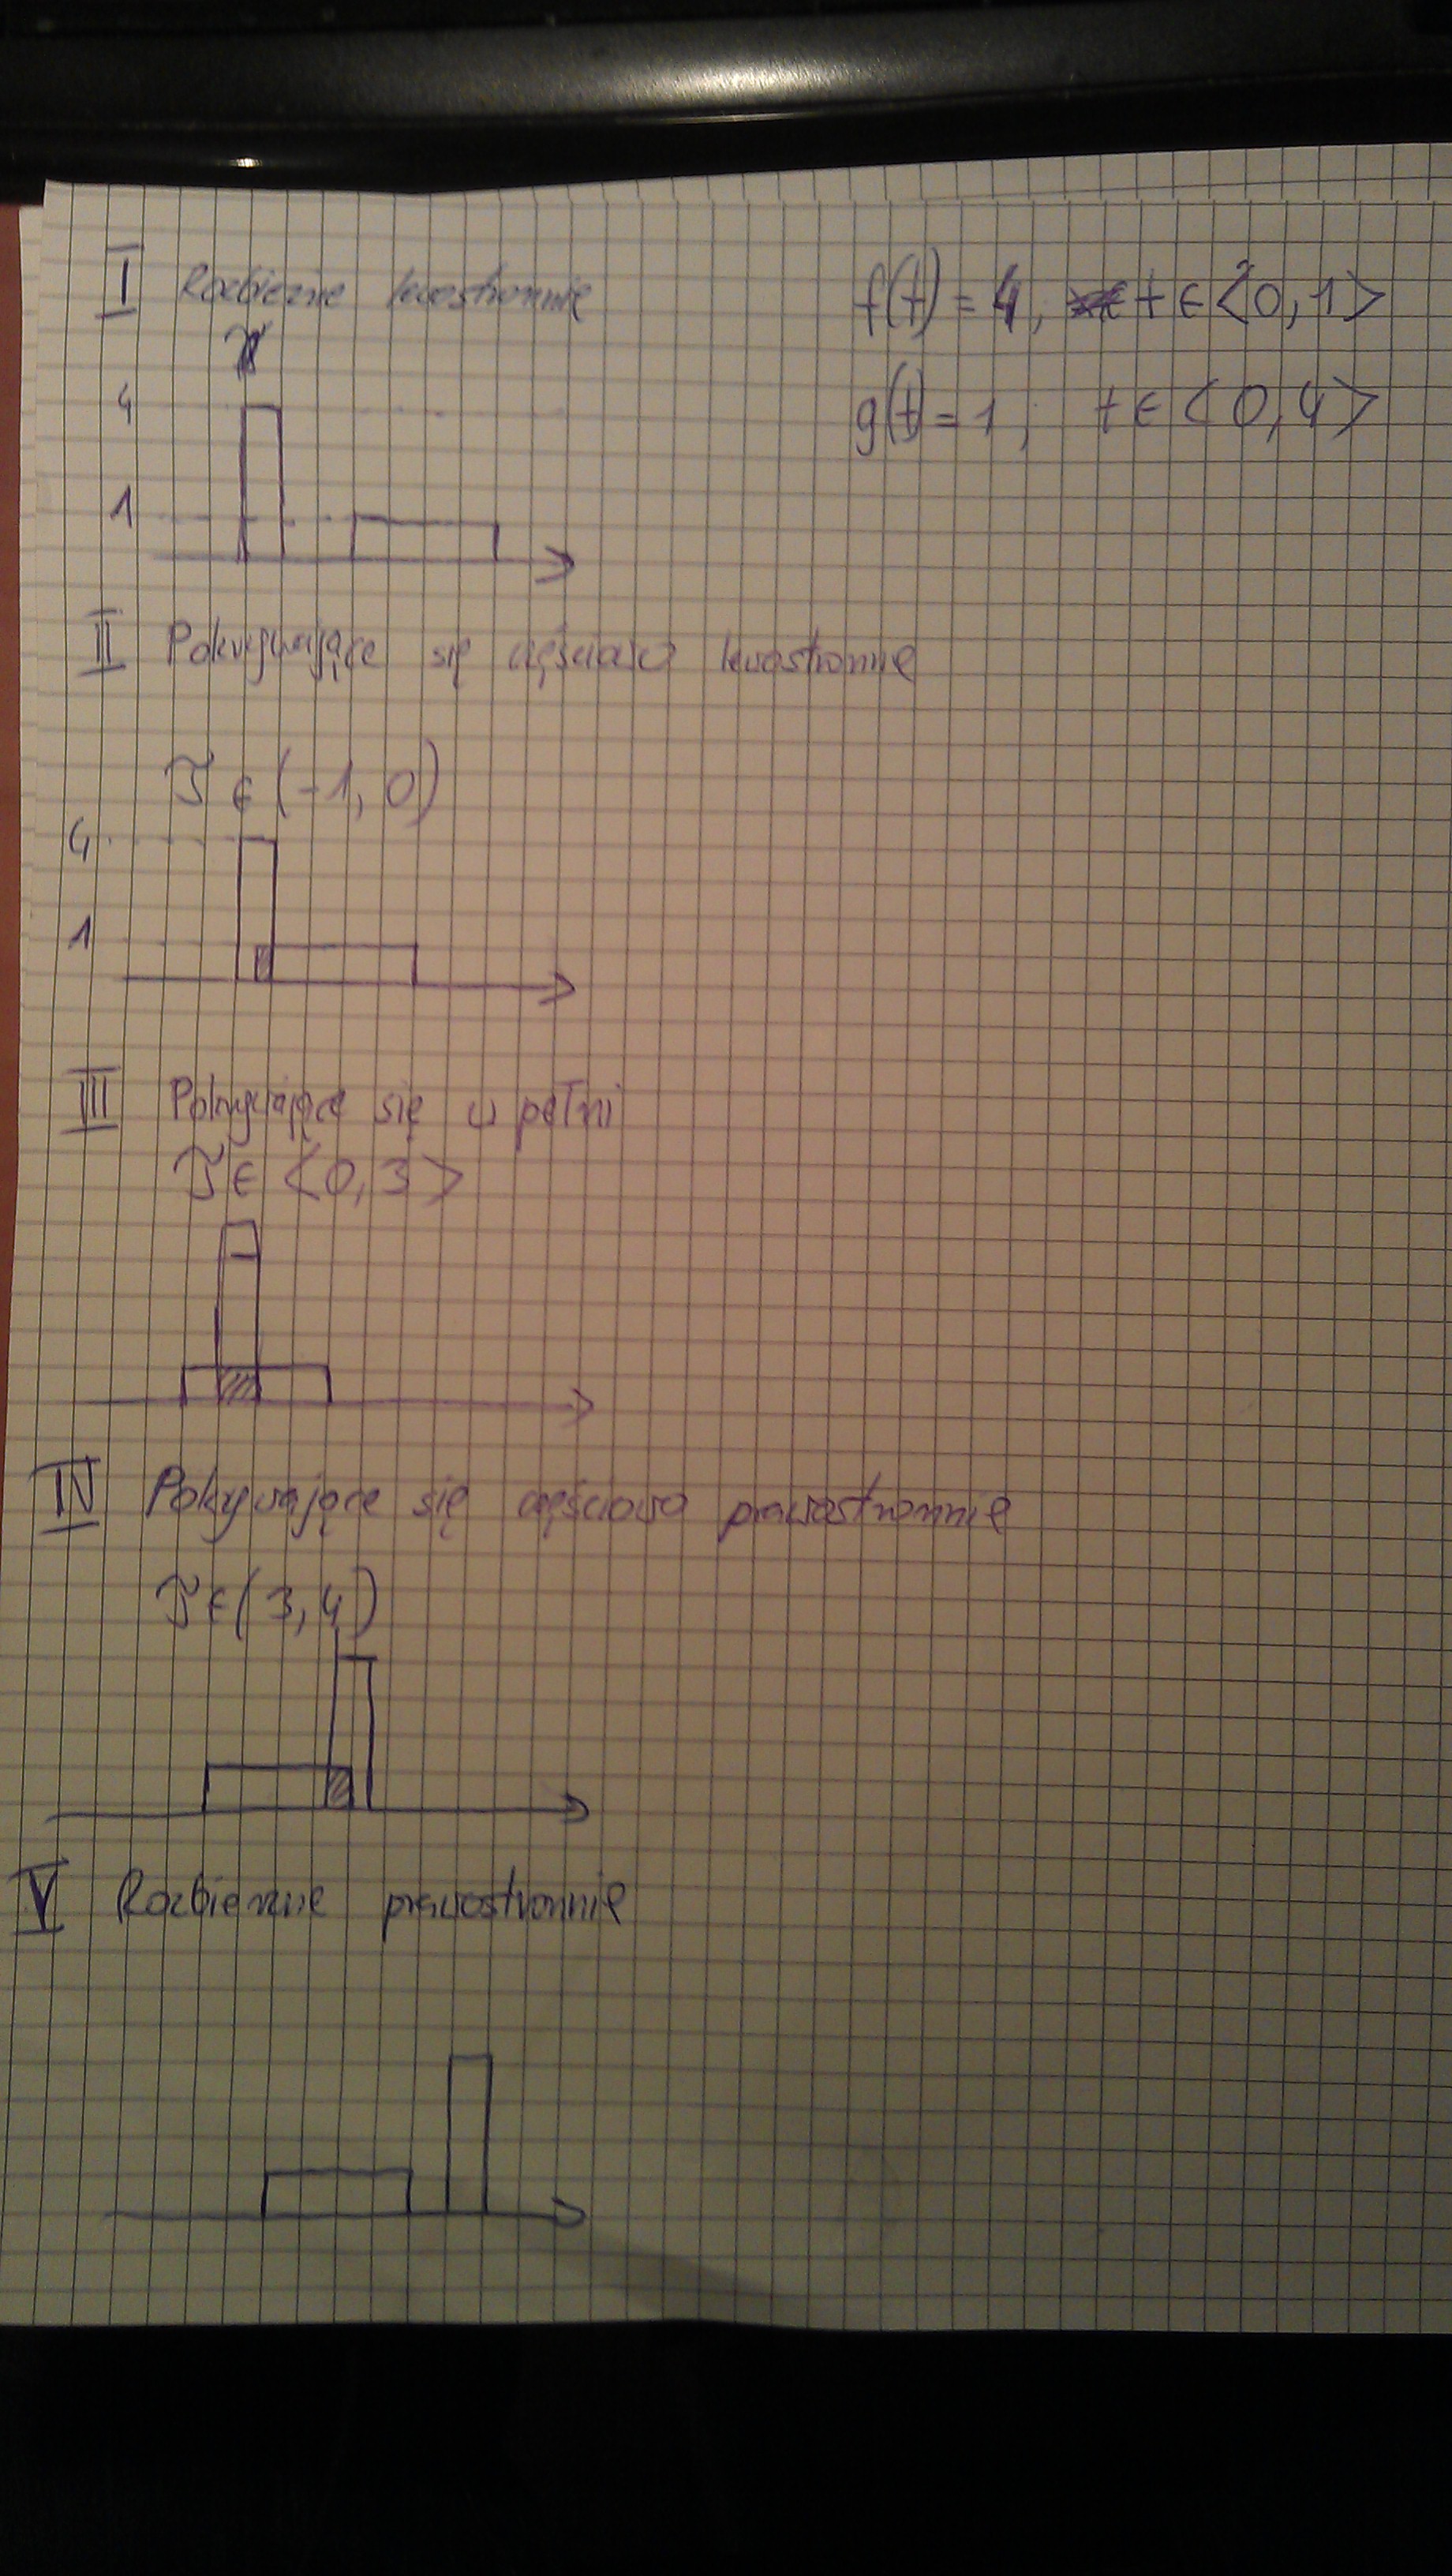 I Rozbieżne lewostronnie
f(t) = 4, t ∈ <0, 1>
g(t) = 1, t ∈ <0, 4>
4
1
II Pokrywające się częściowo lewostronnie
τ ∈ (-1, 0)
4
1
III Pokrywające się w pełni
τ ∈ <0, 3>
IV Pokrywające się częściowo prawostronnie
τ ∈ (3, 4)
V Rozbieżne prawostronnie